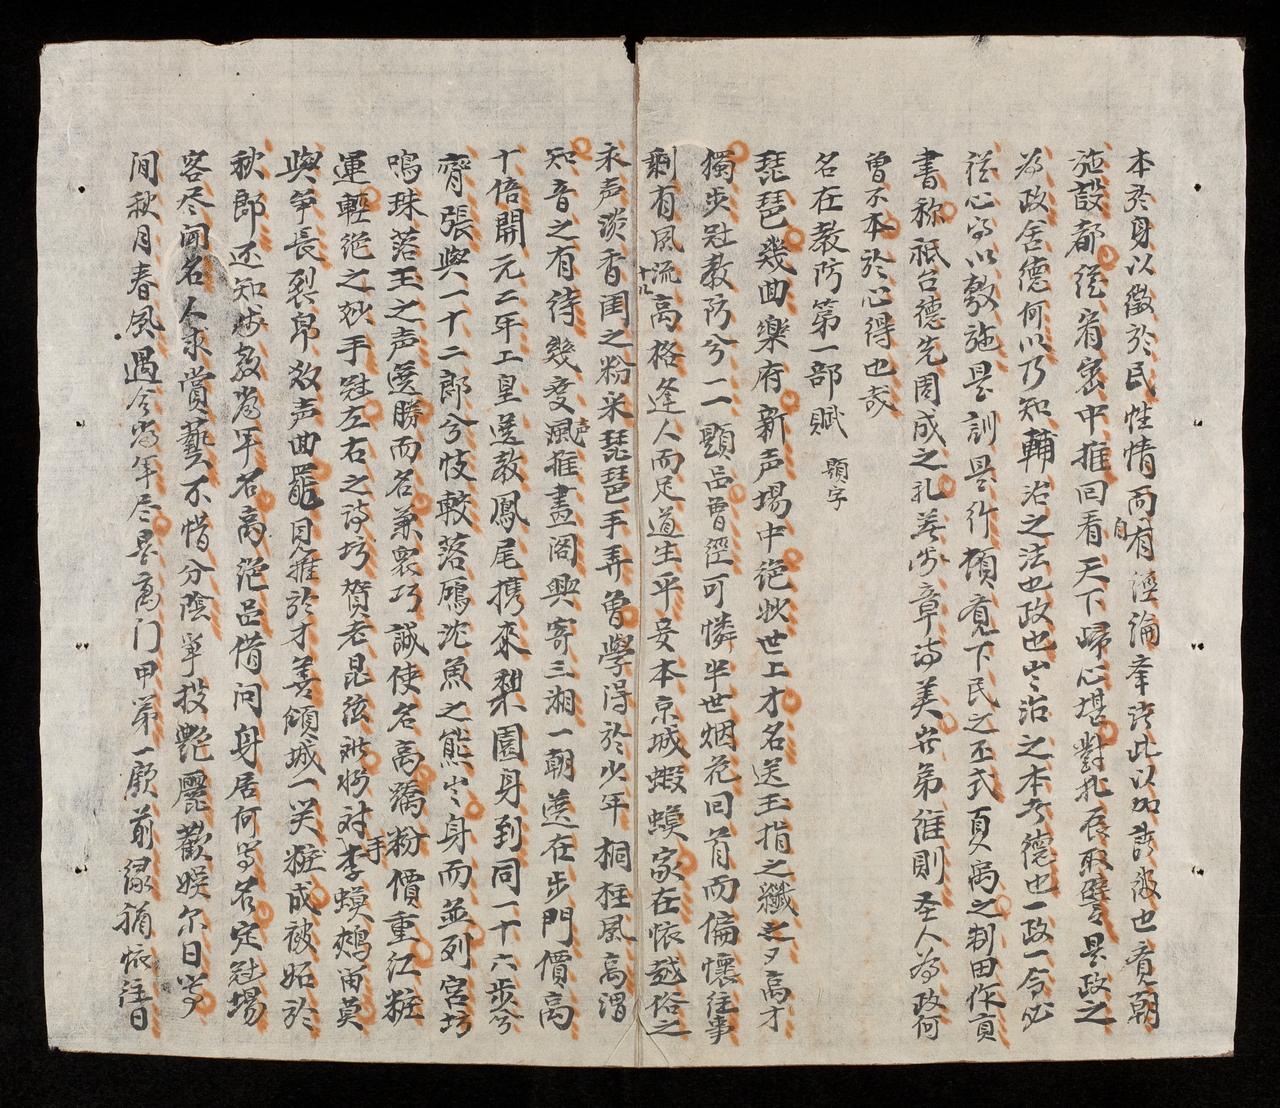 本於身以徵於民性情而自有經綸率諸此以加諸彼也看朝
施設都從宥密中推回看天下歸心堪對扎辰取譬是政之
為政舍德何以乃知輔治之法也政也出治之本者德也一政一令必
從心寫以敷施是訓是行頓看下民之丕式夏禹之制田作貢
書称祇台德先周成之礼並出章詩美岂弟維則圣人為政何
曾不本於心得也哉
名在教防第一部賦 題字
琵琶幾曲樂府新声場中絶妙世上才名送玉指之纖之夕高才
獨步冠教防兮一一題品曾經可憐半世烟花回首而偏懷往事
剩有風流高格逢人而足道生平妾本京城蝦蟆家在怀越俗之
永声淡香闺之粉釆琵琶手弄曾學得於少年桐柱風高渭
知音之有待幾度風声推畫阁興寄三湘一朝選在步門價高
十倍開元二年上皇選教鳳尾携來梨園身到同一十六步兮
齊張與一十二郎兮忮較落鴈沈魚之態出身而並列宮坊
鳴珠落玉之声選勝而名兼衆巧誠使名高騰粉價重江粧
運輕絶之妙手冠左右之詩坊贊老昆弦誰將对手李蟆鵝笛莫
與争長裂帛效声曲罷見推於才善傾城一笑粧成被妬於
秋郎还知步教當年名高絶品借問身居何等名定冠場
客尽闻名人求賞藝不惜分陰争投艷麗歡娱尔日等
闲秋月春風過今當年尽是高门甲第一願前缘猶怀往日